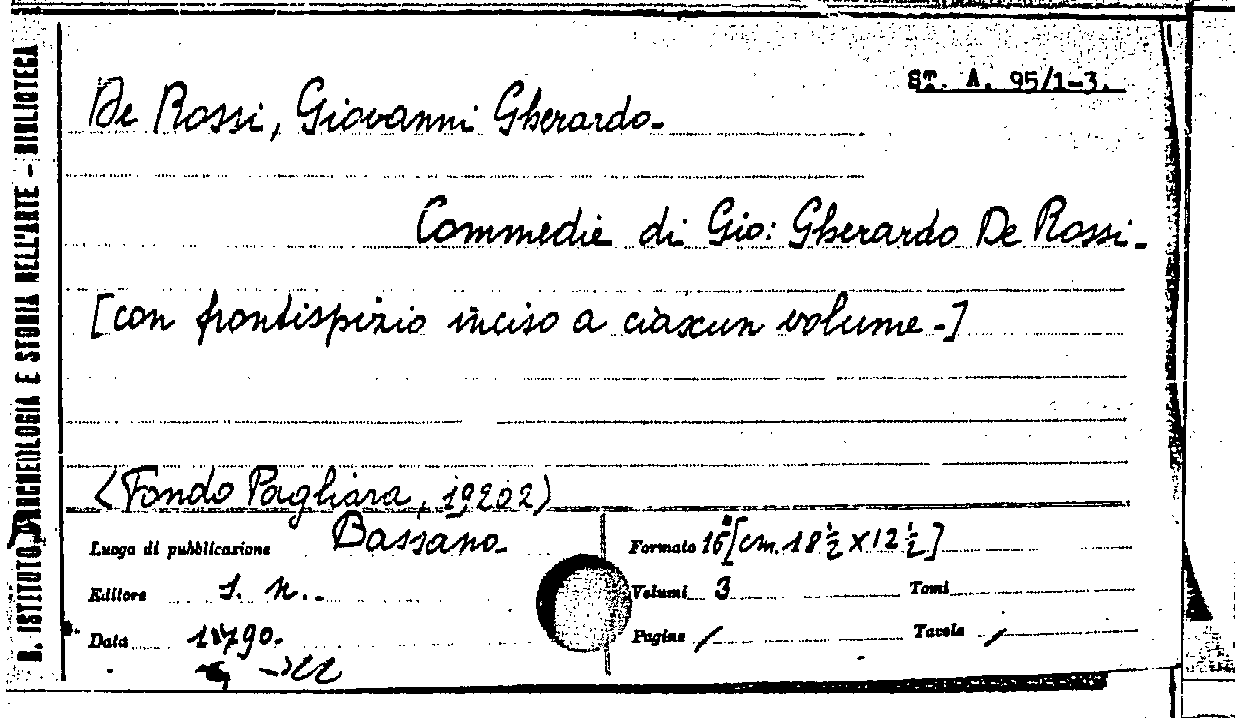 ST. A. 95/1-3.
De Rossi, Giovanni Gherardo-
Commedie di Gio: Gherardo De Rossi-
[con frontispizio inciso a ciascun volume-]
(Fondo Pagliara, 19202)
Luogo di pubblicazione Bassano-
Formato 16° [cm. 18 ½ x 12 ½]
Editore S. n..
Volumi 3 Tomi
Data 1790.
Pagine / Tavole /
R. ISTITUTO D'ARCHEOLOGIA E STORIA DELL'ARTE - BIBLIOTECA